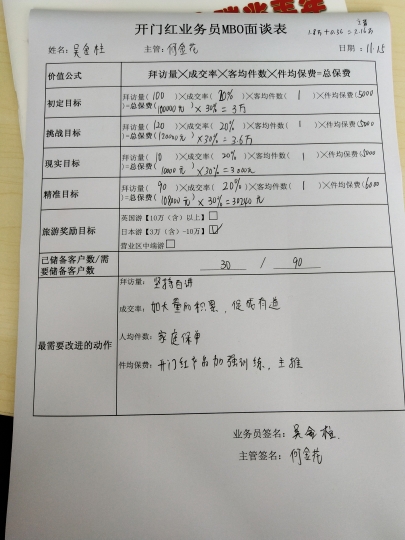 开门红业务员MBO面谈表
姓名：吴金桂 主管：何金花 日期：11.15
价值公式 拜访量×成交率×客均件数×件均保费=总保费
初定目标 拜访量（100）×成交率（20%）×客均件数（1）×件均保费（5000
）=总保费（100000元）×30% = 3万
挑战目标 拜访量（120）×成交率（20%）×客均件数（1）×件均保费（5000
）=总保费（120000元）×30% = 3.6万
现实目标 拜访量（10）×成交率（20%）×客均件数（1）×件均保费（5000
）=总保费（10000元）×30% = 3000元
精准目标 拜访量（90）×成交率（20%）×客均件数（1）×件均保费（6000
）=总保费（108000元）×30%=
旅游奖励目标
英国游【10万（含）以上】□
日本游【3万（含）-10万】☑
营业区中端游□
已储备客户数/需要储备客户数 30 / 90
最需要改进的动作
拜访量：坚持白访
成交率：加大量的积累，促成有道
人均件数：家庭保单
件均保费：开门红产品加强训练，主推
业务员签名：吴金桂
主管签名：何金花